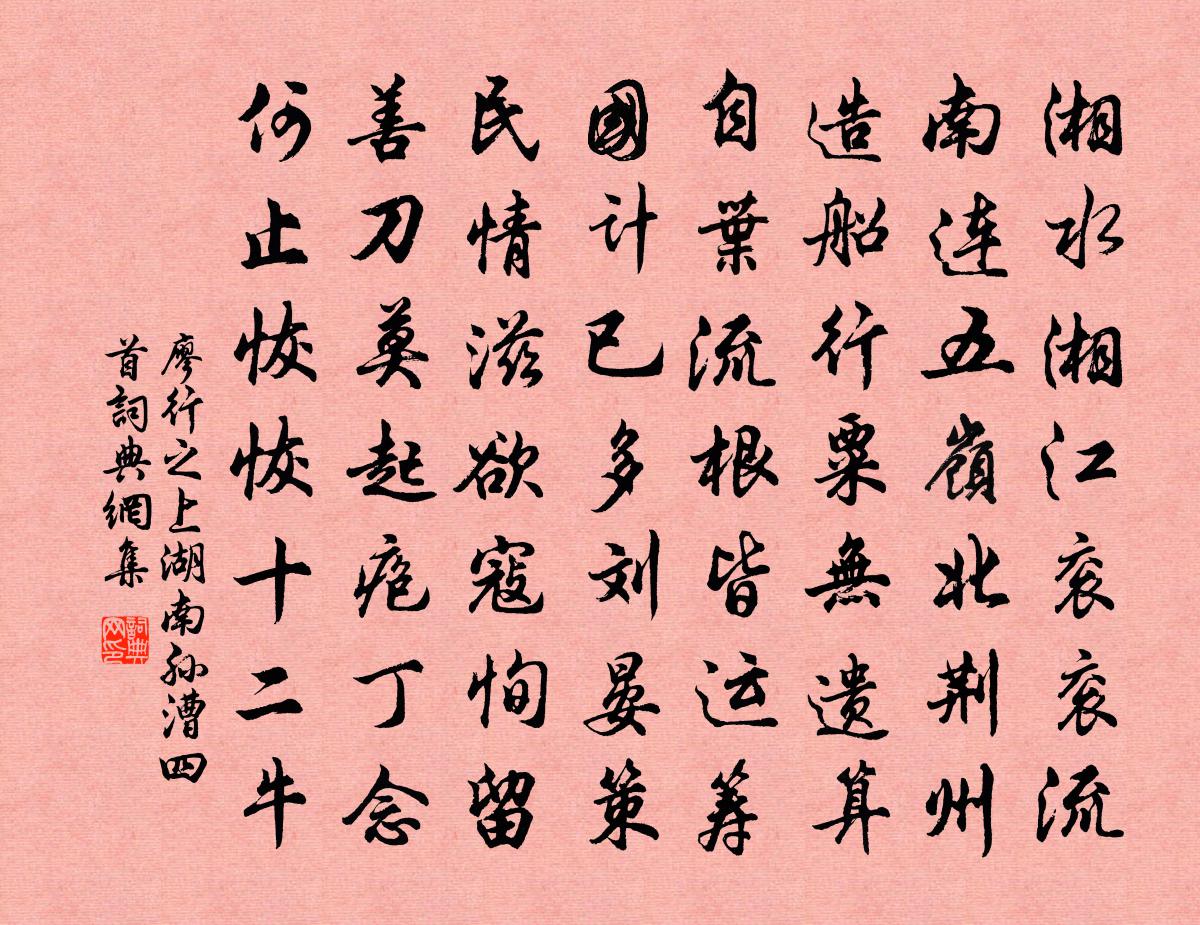 湘水湘江衮衮流
南連五嶺北荆州
造船行粟無遗算
自葉流根皆运筹
國计已多刘晏策
民情滋欲寇恂留
善刀莫起疱丁念
何止恢恢十二牛
廖行之上湖南孙漕四
首詞典網集
詞典网印